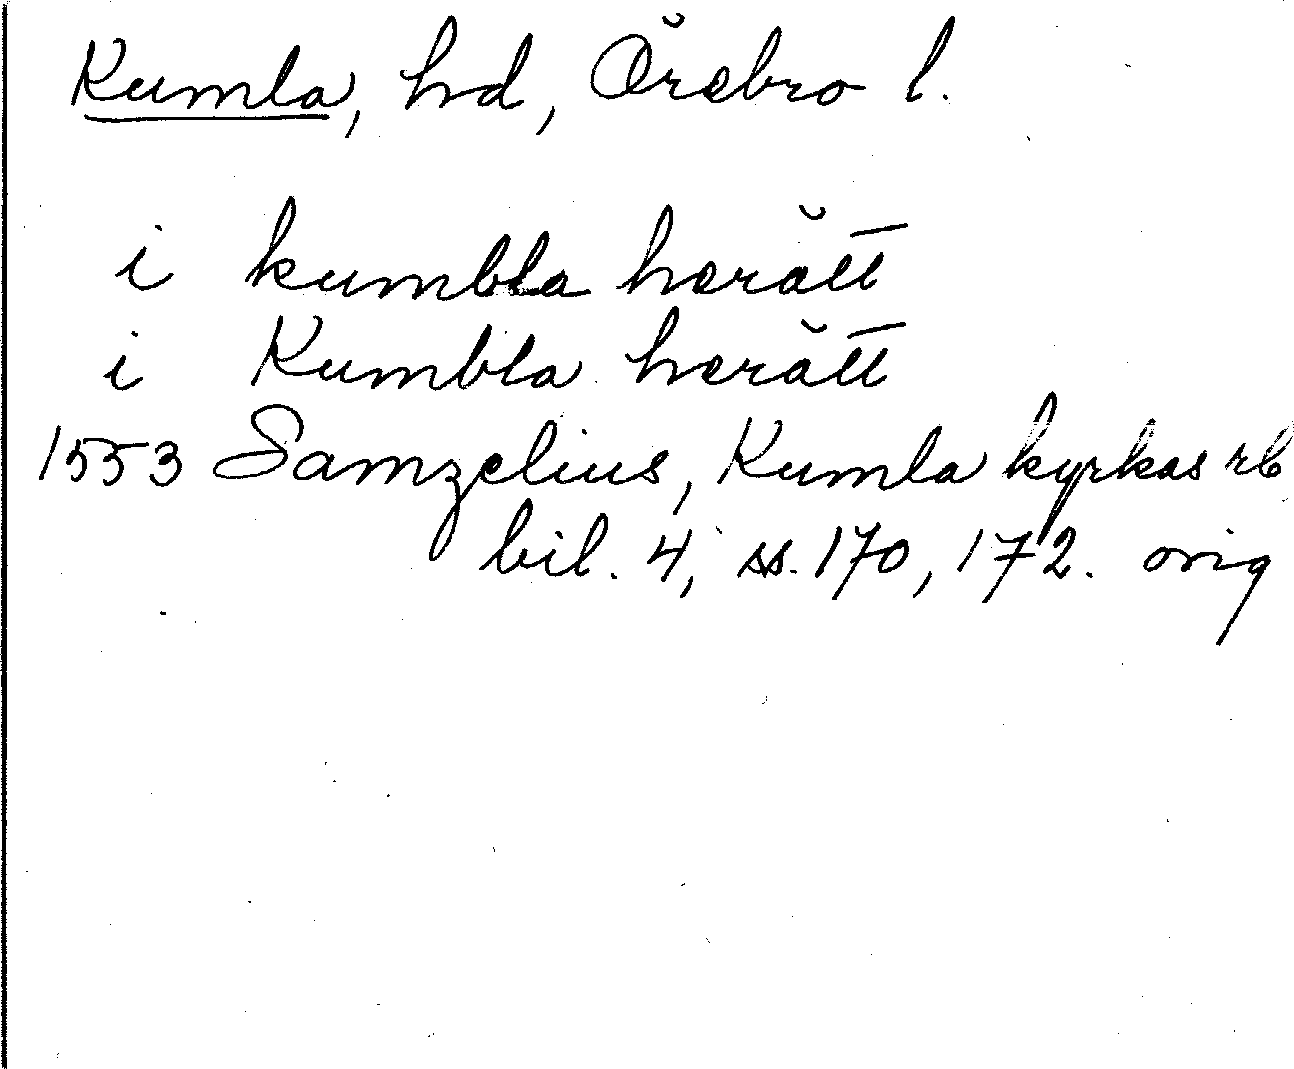 Kumla, hd, Örebro l.
i kumbla herätt
i Kumbla herätt
1553 Samzelius, Kumla kyrkas rb
bil. 4, ss. 170, 172. orig